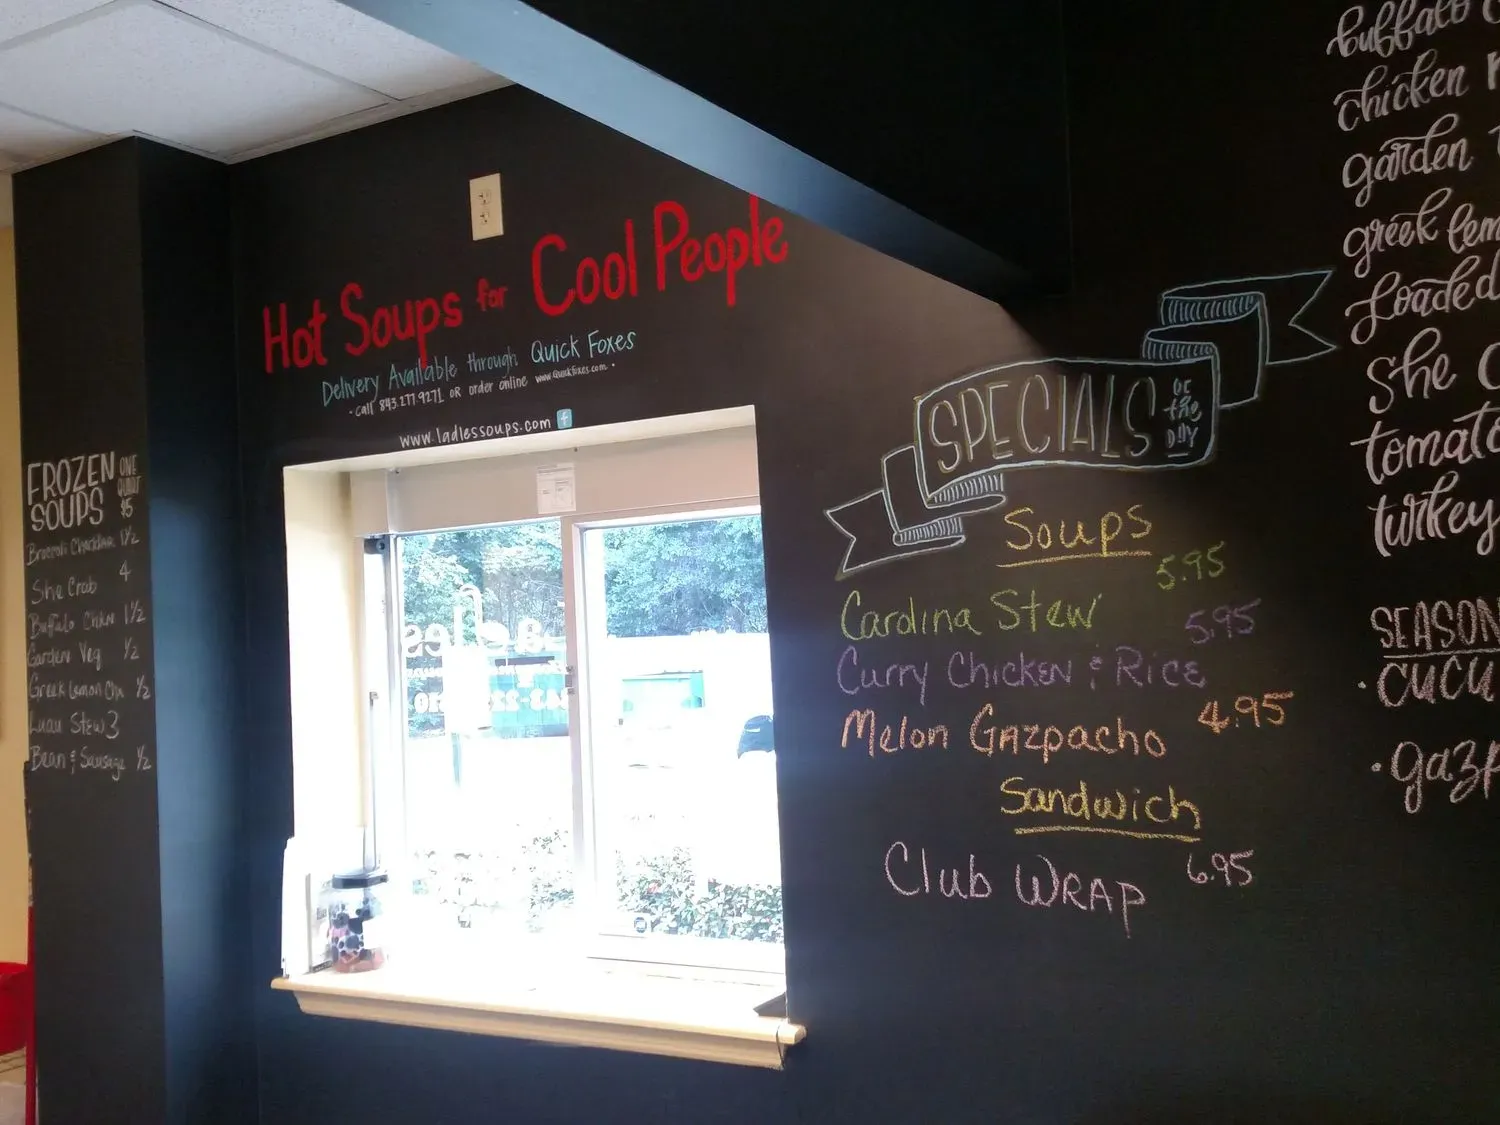 Hot Soups for Cool People
Delivery Available through Quick Foxes
• call 843.277.9271 OR order online www.Quickfoxes.com •
www.ladlessoups.com f
FROZEN SOUPS
ONE QUART $5
Broccoli Cheddar 1½
She Crab 4
Buffalo Chkn 1½
Garden Veg ½
Greek Lemon Chx ½
Luau Stew 3
Bean & Sausage ½
SPECIALS OF the DAY
Soups
Carolina Stew 5.95
Curry Chicken & Rice 5.95
Melon Gazpacho 4.95
Sandwich
Club Wrap 6.95
buffalo
chicken
garden
greek lem
Loaded
She
tomato
turkey
SEASON
• CUCU
• gazp